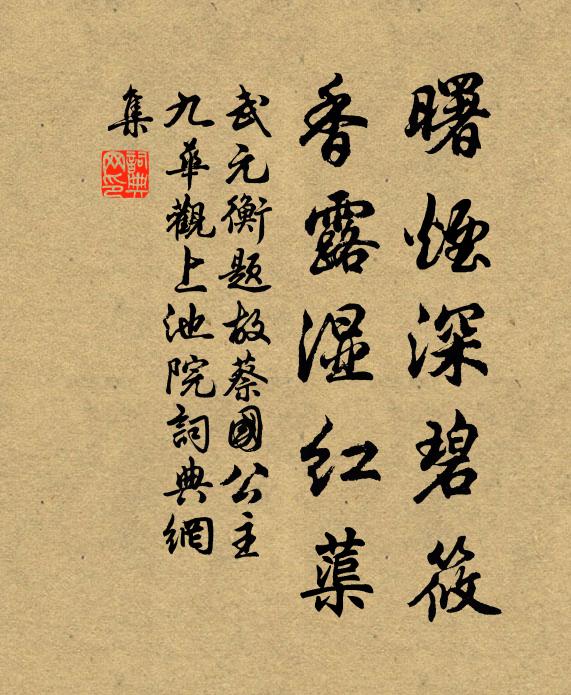 曙煙深碧筱
香露湿红蕖
武元衡题故蔡國公主
九華觀上池院詞典網
集
詞典
网印